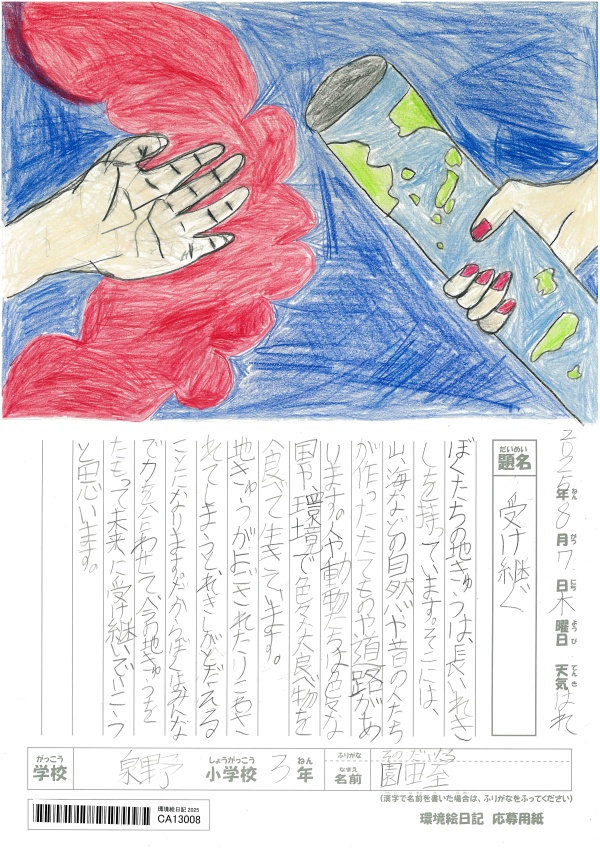 2025年8月7日木曜日 天気はれ
ねん がつ にち ようび てんき
だいめい
題名 受け継ぐ
ぼくたちの地きゅうは、長いれき
しを持っています。そこには、
山、海などの自然がや昔の人たち
が作ったたてものや、道路があ
ります。人や動動たちは色々な
国や、環境で色々な食べ物を
食べて生きています。
地きゅうがよごされたりこわさ
れてしまうと、れきしがとだえる
ことになります。だからぼくはみんな
で力を合わせて、今の地きゅうを
たもって未来に受け継いでいこう
と思います。
がっこう しょうがっこう ねん
学校 泉野 小学校 3年
ふりがな そのだ いたる
なまえ
名前 園田至
(漢字で名前を書いた場合は、ふりがなをふってください)
環境絵日記 2025
CA13008
環境絵日記 応募用紙